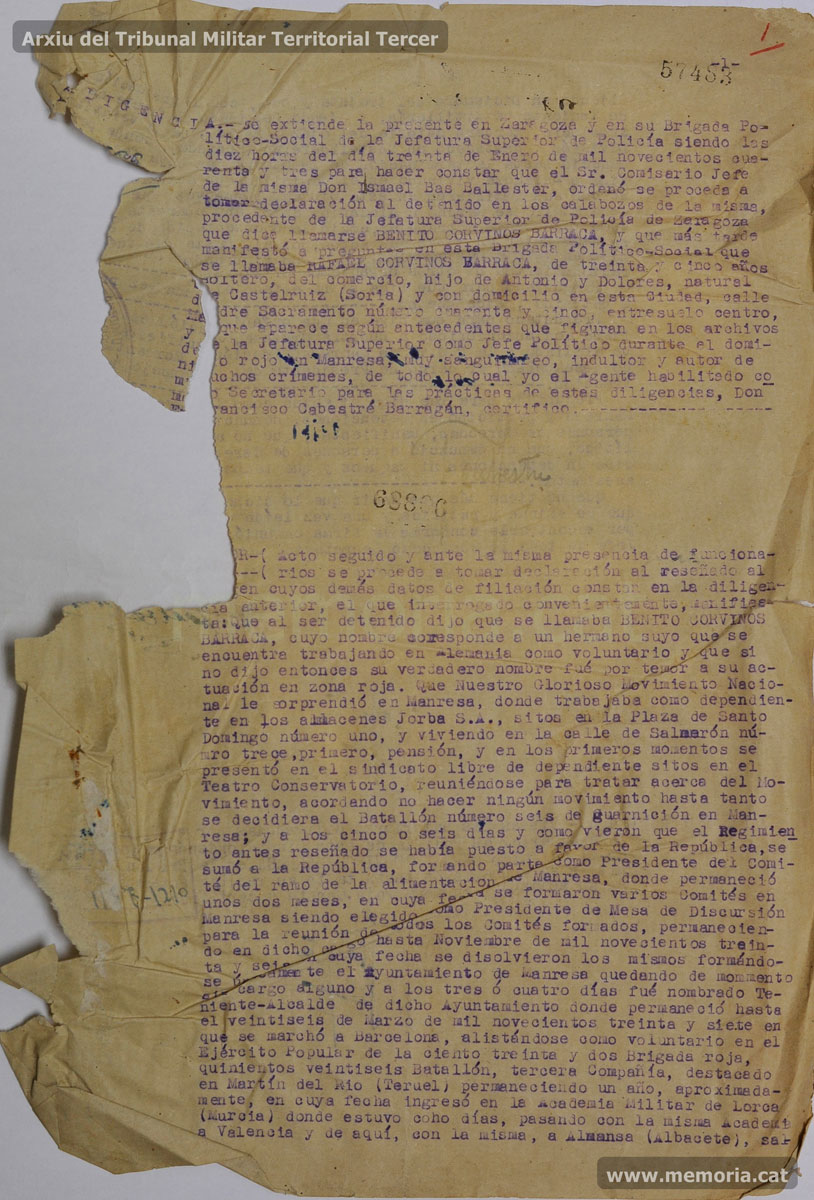 Arxiu del Tribunal Militar Territorial Tercer
1
-1-
57483
DILIGENCIA.- Se extiende la presente en Zaragoza y en su Brigada Po-
lítico-Social de la Jefatura Superior de Policía siendo las
diez horas del día treinta de Enero de mil novecientos cua-
renta y tres para hacer constar que el Sr. Comisario Jefe
de la misma Don Ismael Bas Ballester, ordenó se proceda a
tomar declaración al detenido en los calabozos de la misma,
procedente de la Jefatura Superior de Policía de Zaragoza
que dice llamarse BENITO CORVINOS BARRACA, y que más tarde
manifestó a preguntas en esta Brigada Político-Social que
se llamaba RAFAEL CORVINOS BARRACA, de treinta y cinco años
soltero, del comercio, hijo de Antonio y Dolores, natural
de Castelruiz (Soria) y con domicilio en esta Ciudad, calle
Madre Sacramento número cuarenta y cinco, entresuelo centro,
y que aparece según antecedentes que figuran en los archivos
de la Jefatura Superior como Jefe Político durante el domi-
nio rojo en Manresa, muy sanguinareo, indultor y autor de
muchos crímenes, de todo lo cual yo el Agente habilitado co
mo Secretario para las prácticas de estas diligencias, Don
Francisco Cabestré Barragán, certifico.
68800
OR-( Acto seguido y ante la misma presencia de funciona-
---( rios se procede a tomar declaración al reseñado al
en cuyos demás datos de filiación constan en la diligen-
cia anterior, el que interrogado convenientemente, manifies-
ta: Que al ser detenido dijo que se llamaba BENITO CORVINOS
BARRACA, cuyo nombre corresponde a un hermano suyo que se
encuentra trabajando en Alemania como voluntario y que si
no dijo entonces su verdadero nombre fué por temor a su ac-
tuación en zona roja. Que Nuestro Glorioso Movimiento Nacio-
nal le sorprendió en Manresa, donde trabajaba como dependien-
te en los almacenes Jorba S.A., sitos en la Plaza de Santo
Domingo número uno, y viviendo en la calle de Salmerón nú-
mro trece,primero, pensión, y en los primeros momentos se
presentó en el sindicato libre de dependiente sitos en el
Teatro Conservatorio, reuniéndose para tratar acerca del Mo-
vimiento, acordando no hacer ningún movimiento hasta tanto
se decidiera el Batallón número seis de guarnición en Man-
resa; y a los cinco o seis días y como vieron que el Regimien
to antes reseñado se había puesto a favor de la República,se
sumó a la República, formando parte como Presidente del Comi-
té del ramo de la alimentación de Manresa, donde permaneció
unos dos meses, en cuya fecha se formaron varios Comités en
Manresa siendo elegido como Presidente de Mesa de Discursión
para la reunión de todos los Comités formados, permanecien-
do en dicho cargo hasta Noviembre de mil novecientos trein-
ta y seis en cuya fecha se disolvieron los mismos formándo-
se el Ayuntamiento de Manresa quedando de mommento
sin cargo alguno y a los tres ó cuatro días fué nombrado Te-
niente-Alcalde de dicho Ayuntamiento donde permaneció hasta
el veintiseis de Marzo de mil novecientos treinta y siete en
que se marchó a Barcelona, alistándose como voluntario en el
Ejército Popular de la ciento treinta y dos Brigada roja,
quinientos veintiseis Batallón, tercera Compañía, destacado
en Martín del Rio (Teruel) permaneciendo un año, aproximada-
mente, en cuya fecha ingresó en la Academia Militar de Lorca
(Murcia) donde estuvo coho días, pasando con la misma Academi
a Valencia y de aquí, con la misma, a Almansa (Albacete), sal-
www.memoria.cat